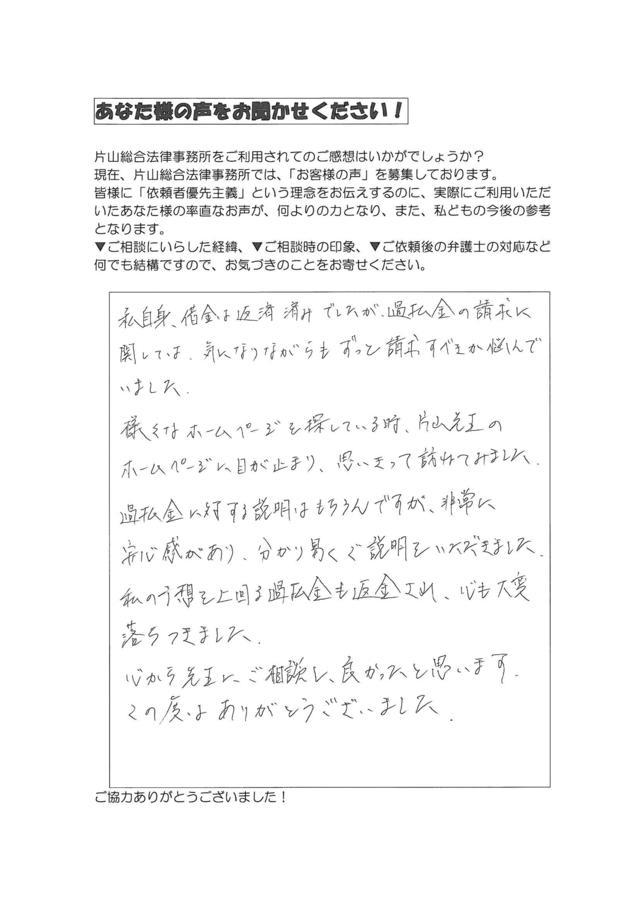 あなた様の声をお聞かせください！
片山総合法律事務所をご利用されてのご感想はいかがでしょうか？
現在、片山総合法律事務所では、「お客様の声」を募集しております。
皆様に「依頼者優先主義」という理念をお伝えするのに、実際にご利用いただ
いたあなた様の率直なお声が、何よりの力となり、また、私どもの今後の参考
となります。
▼ご相談にいらした経緯、▼ご相談時の印象、▼ご依頼後の弁護士の対応など
何でも結構ですので、お気づきのことをお寄せください。
私自身、借金は返済済みでしたが、過払金の請求に
関しては、気になりながらもずっと請求すべきか悩んで
いました。
様々なホームページを探している時、片山先生の
ホームページに目が止まり、思いきって訪ねてみました。
過払金に対する説明はもちろんですが、非常に
安心感があり、分かり易くご説明をいただきました。
私の予想を上回る過払金も返金され、心も大変
落ちつきました。
心から先生に、ご相談し、良かったと思います。
この度はありがとうございました。
ご協力ありがとうございました！